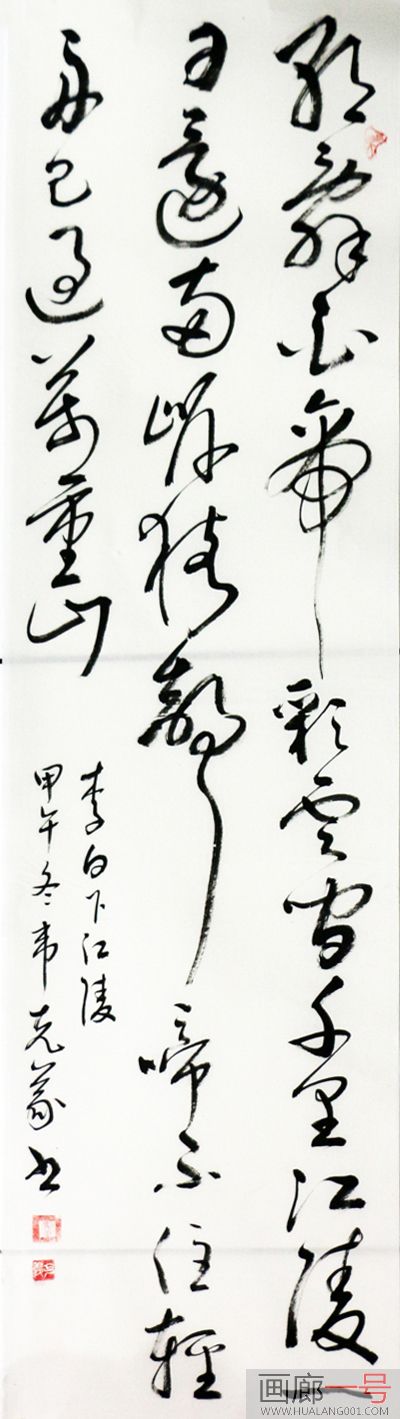 朝辭白帝彩雲間千里江陵一
日還兩岸猿聲啼不住輕
舟已過萬重山
李白下江陵
甲午冬韦克義书
画廊一号
WWW.HUALANG001.COM